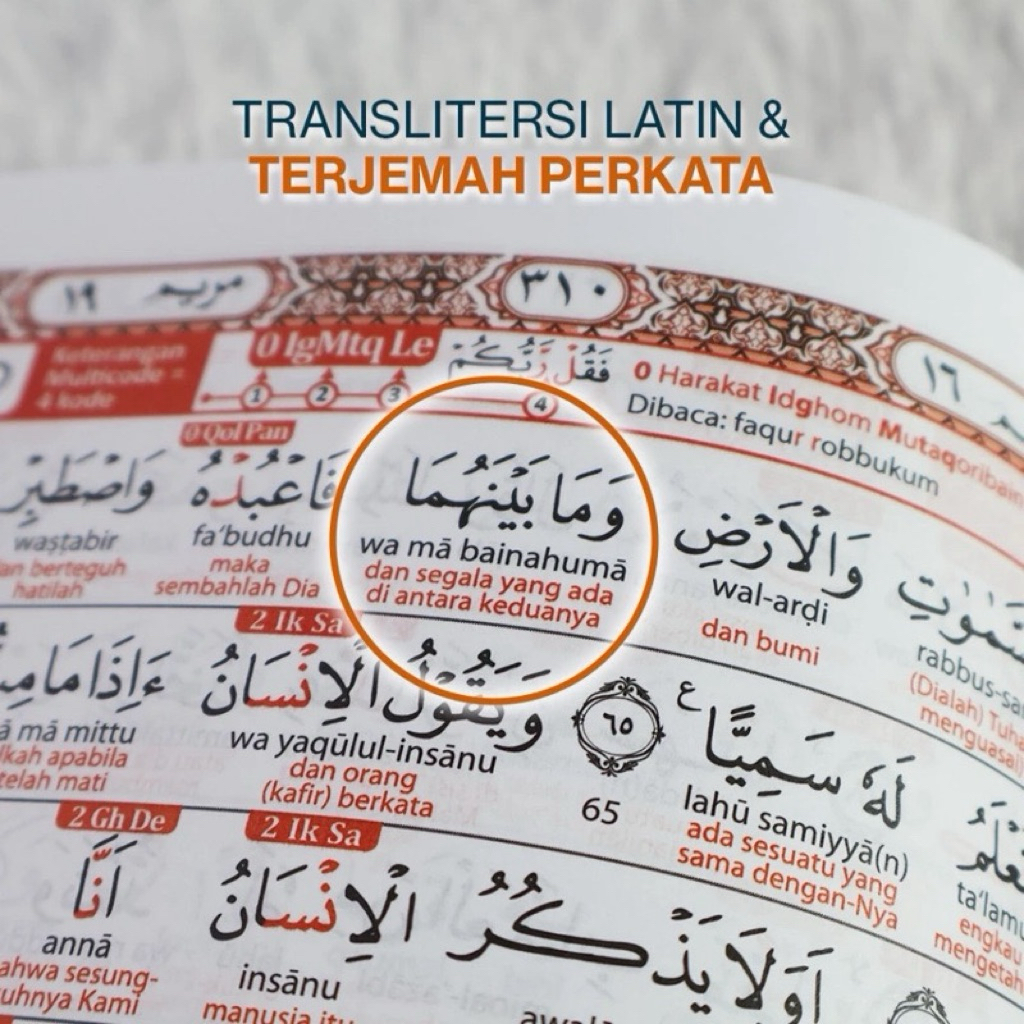 TRANSLITERSI LATIN &
TERJEMAH PERKATA
مريم ١٩
٣١٠
١٦
Keterangan
Multicode =
4 kode
0 IgMtq Le
1 2 3 4
فَقُلْ رَّبُّكُمْ
0 Harakat Idghom Mutaqoribain
Dibaca: faqur robbukum
0 Qol Pan
وَالْاَرْضِ وَمَا بَيْنَهُمَا فَاعْبُدْهُ وَاصْطَبِرْ
rabbus-sa wal-arḍi wa mā bainahumā fa‘budhu waṣṭabir
(Dialah) Tuha
menguasai
dan bumi
dan segala yang ada
di antara keduanya
maka
sembahlah Dia
an berteguh
hatilah
2 Ik Sa
لَهٗ سَمِيًّا ࣖ ٦٥ وَيَقُوْلُ الْاِنْسَانُ ءَاِذَا مَا
ta‘lamu lahū samiyyā(n) 65 wa yaqūlul-insānu ā mā mittu
engkau
mengetah
ada sesuatu yang
sama dengan-Nya
dan orang
(kafir) berkata
kah apabila
telah mati
2 Ik Sa
2 Gh De
اَوَلَا يَذْكُرُ الْاِنْسَانُ اَنَّا
insānu annā
manusia itu
ahwa sesung-
uhnya Kami